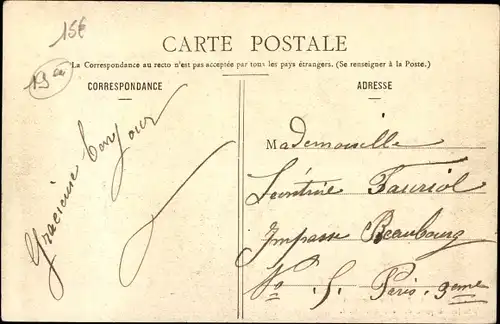 15€
19
CARTE POSTALE
La Correspondance au recto n'est pas acceptée par tous les pays étrangers. (Se renseigner à la Poste.)
CORRESPONDANCE
ADRESSE
Gracieuse
Mademoiselle
Léontine Fauriol
Impasse Beaubourg
No 5. Paris. 3eme